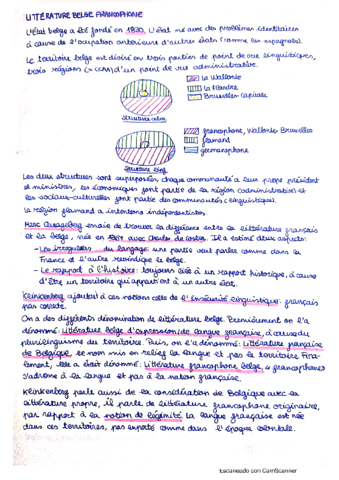 LITTÉRATURE BELGE FRANCOPHONE
L'État belge a été fondé en 1830. L'état né avec des problèmes identitaires
à cause de l'ocupation antérieure d'autres états (comme les espagnols).
Le territoire belge est divisé en trois parties de point de vue linguistiques,
trois régions d'un point de vue administrative.
la Wallonie
la Flandre
Bruxelles Capitale
Structure
francophone, Wallonie Bruxelles
flamand
germanophone
Structure
Les deux structures sont superposées, chaque communauté a leur propre président
et ministres, les économiques sont partie de la région (administration) et
les socioux-culturelles sont partie des communautés (linguistiques).
La région flamand a intentions indépendentistes.
Marc Quaghebeur essaie de trouver la différence entre la littérature français
et la belge, née en avec Charles de Coster. Il a estimé deux aspects:
- Les irrégularités du langage: une partie veut parler comme dans la
France et l'autre revendique le belge.
- Le rapport à l'histoire: toujours liée à un rapport historique, à cause
d'être un territoire qui appartient à un autre état.
Klinkenberg ajoutait à ces notions celle de l'insécurité linguistique: français
pas correcte.
On a des différents dénomination de littérature belge. Premièrement on l'a
dénommé: Littérature belge d'expression/de langue française, à cause du
plurilinguisme du territoire. Puis, on l'a dénommé: Littérature française
de Belgique, le nom mis en relief la langue et pas le territoire. Fina-
lement, elle a était dénommé: Littérature francophone belge, "francophone"
s'adresse à la langue et pas à la nation française.
Klinkenberg parle aussi de la considération de Belgique avec sa
littérature propre, il parle de littérature francophone originaire,
par rapport à la notion de légénité. La langue française est née
dans ces territoires, pas exporté comme dans l'époque coloniale.
Escaneado con CamScanner